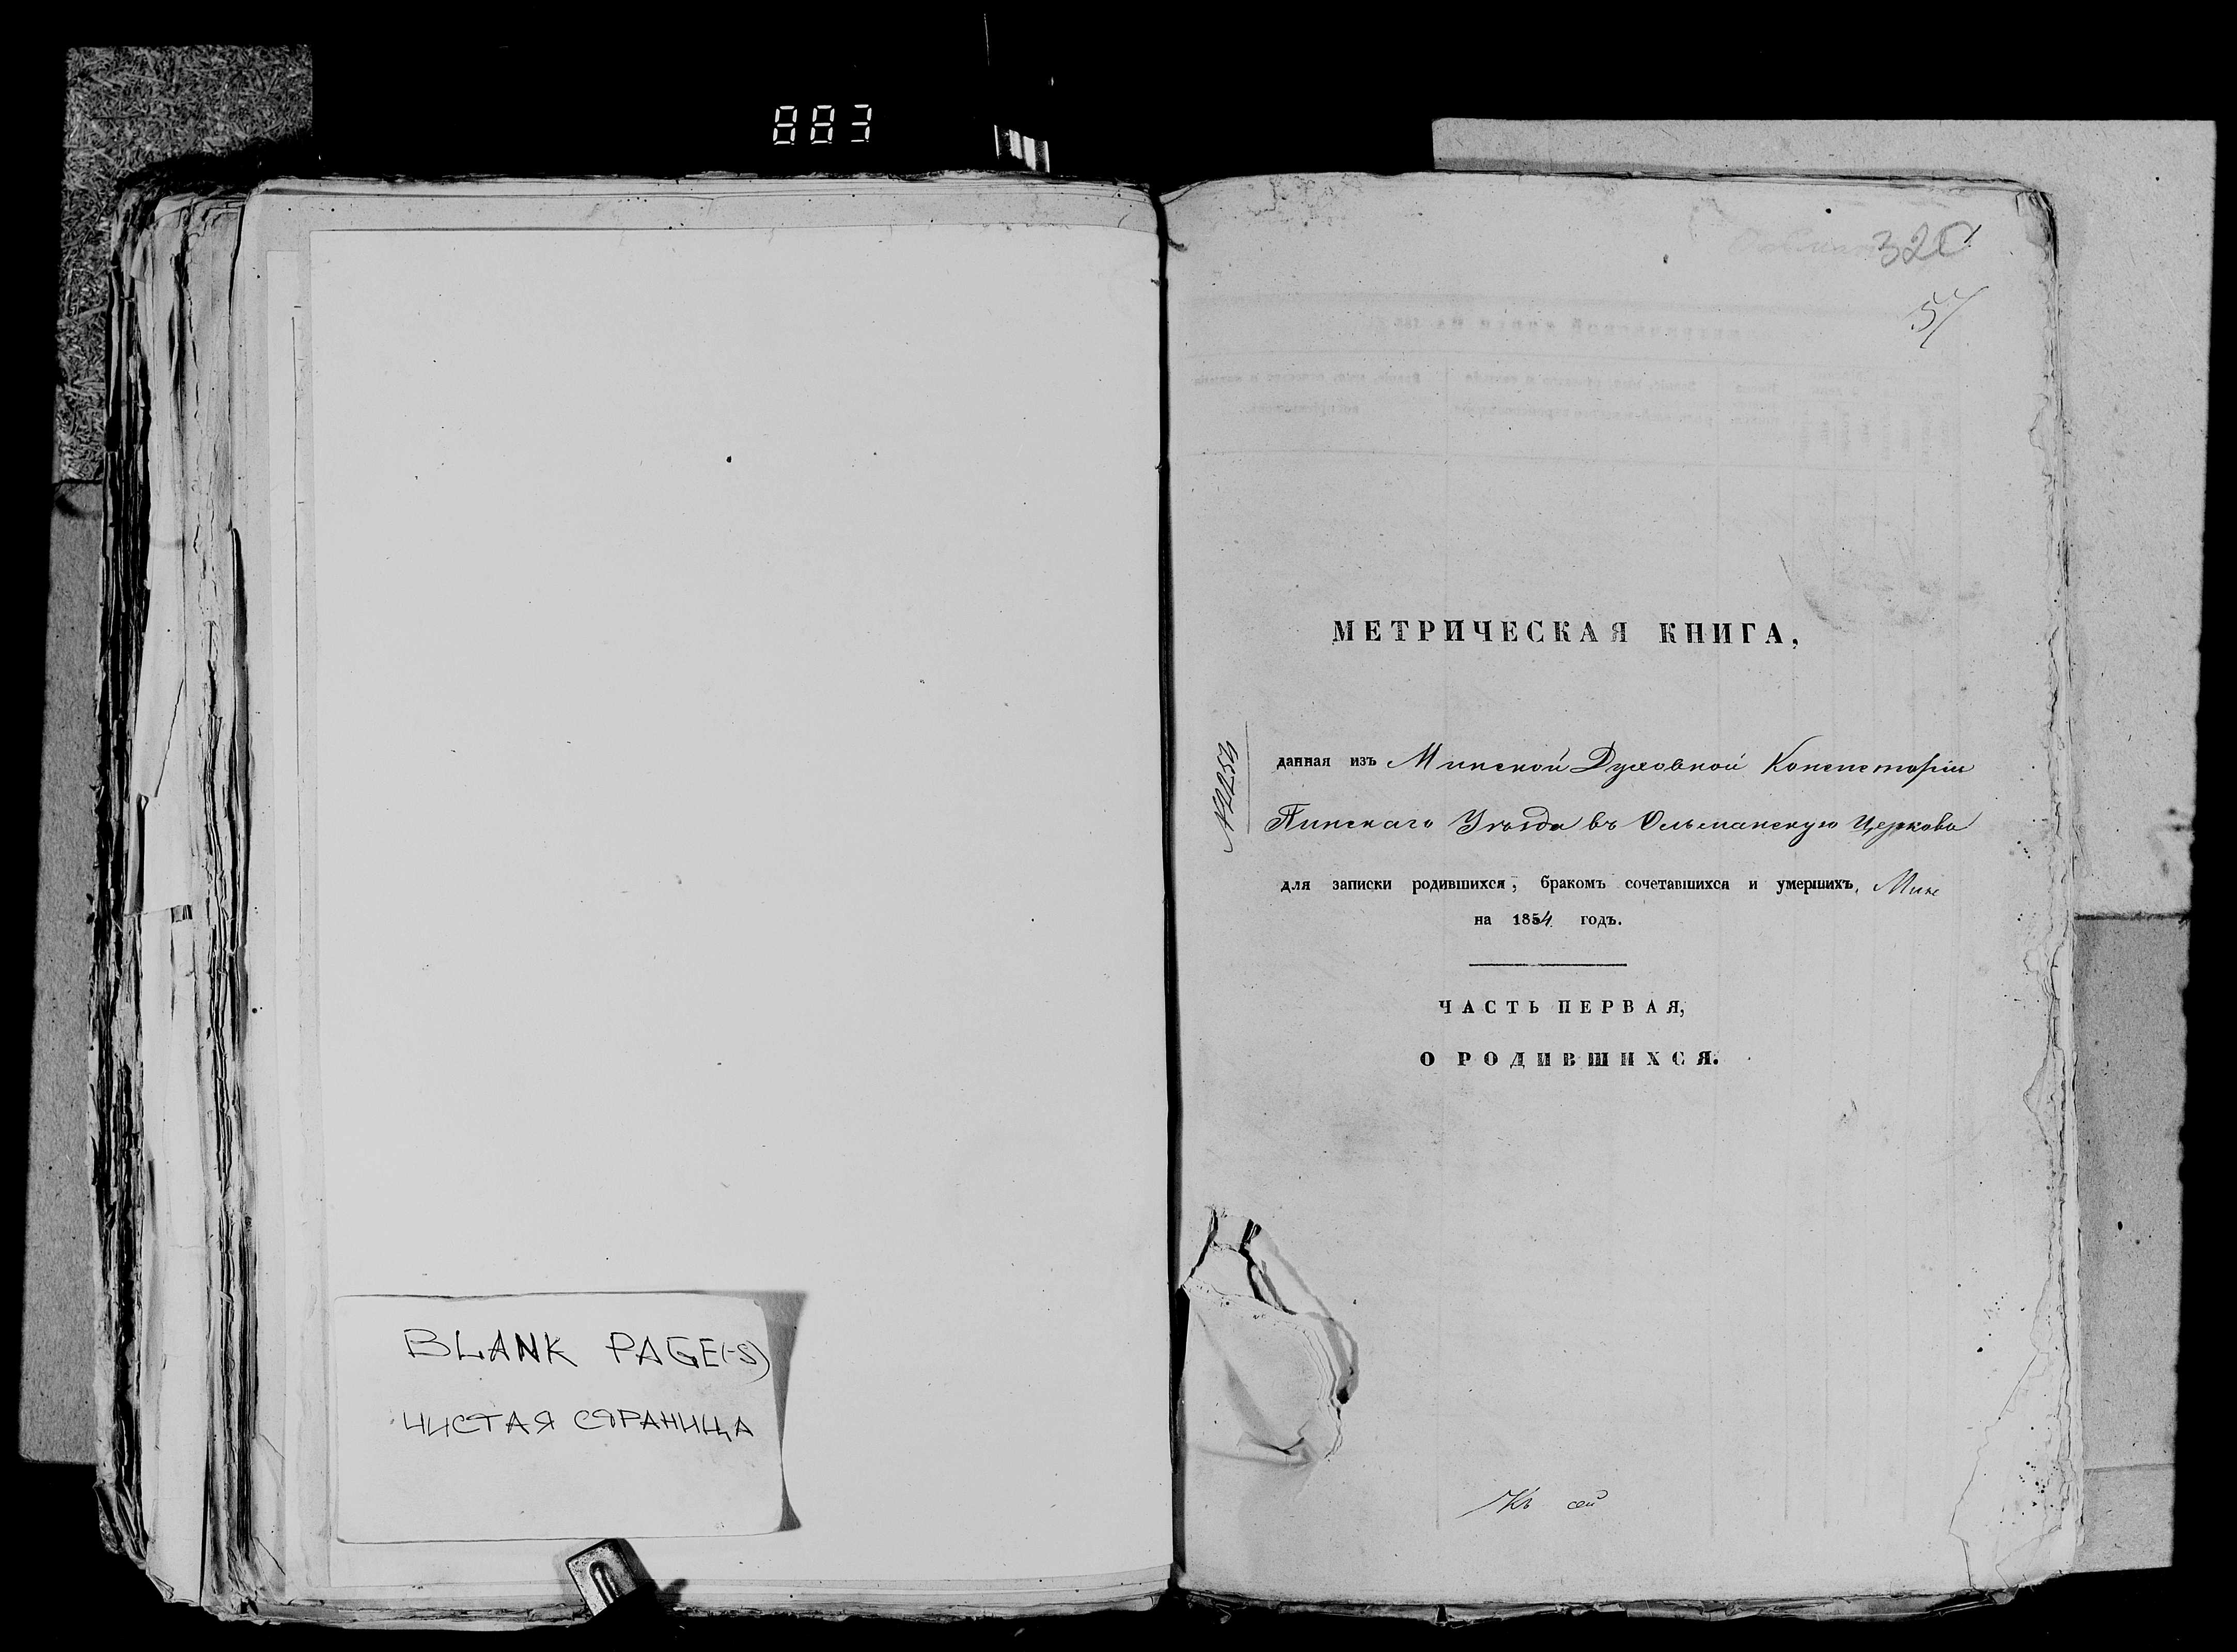 883
BLANK PAGE(-S)
ЧИСТАЯ СТРАНИЦА
320
МЕТРИЧЕСКАЯ КНИГА,
данная изъ Минской Духовной Консисторіи
Пинскаго Уѣзда въ Ольманскую Церковь
для записки родившихся, бракомъ сочетавшихся и умершихъ,
на 1854 годъ.
ЧАСТЬ ПЕРВАЯ,
О РОДИВШИХСЯ.
Къ сей